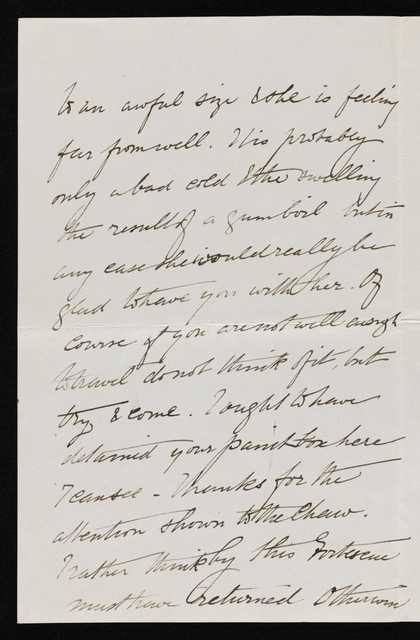 to an awful size & she is feeling
far from well. It is probably
only a bad cold & the swelling
the result of a gumboil but in
any case she would really be
glad to have you with her. Of
course if you are not well enough
to travel do not think of it, but
try & come. I ought to have
detained your paint box here
I can see - Thanks for the
attention shown to the
I rather think by this Fortescue
must have returned Otherwise